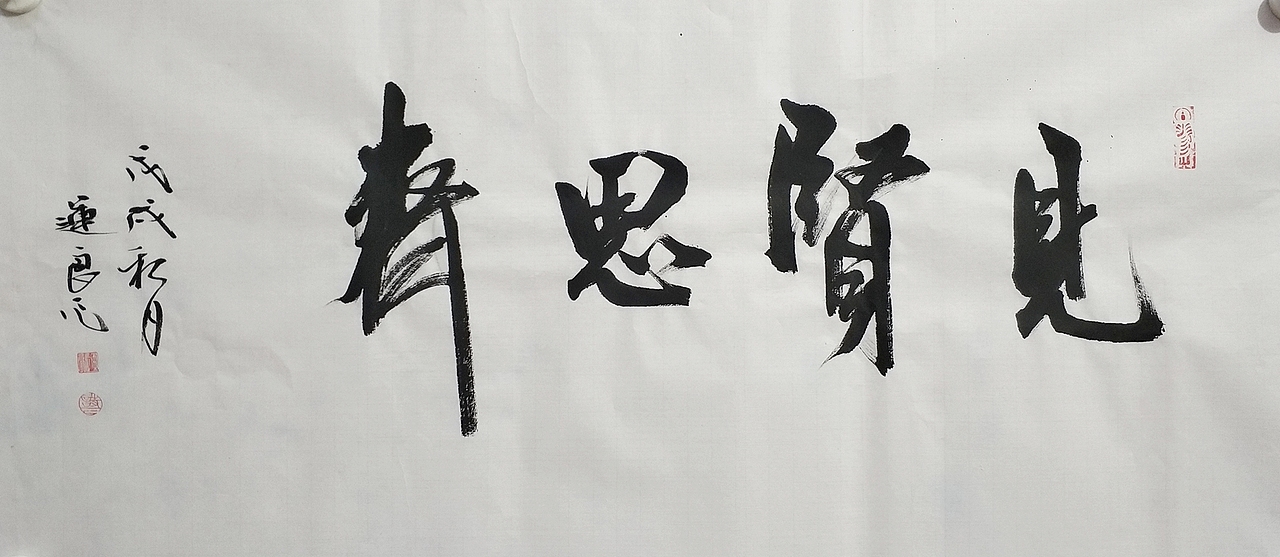 見賢思齊
戊戌秋月
蓮良